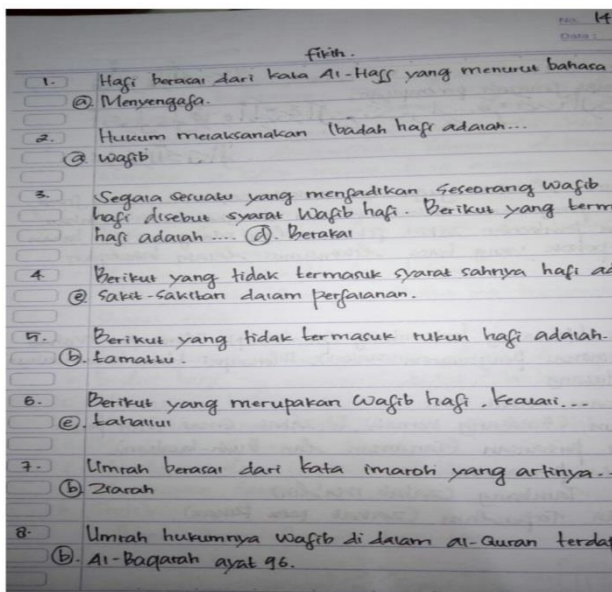 No. 14
Date :
fikih.
1. Haji berasal dari kata Al-Hajj yang menurut bahasa
a. Menyengaja.
2. Hukum melaksanakan ibadah haji adalah...
a. wajib
3. Segala sesuatu yang menjadikan seseorang wajib
haji disebut syarat wajib haji. Berikut yang term
haji adalah .... d. Berakal
4. Berikut yang tidak termasuk syarat sahnya haji ad
e. sakit-sakitan dalam perjalanan.
5. Berikut yang tidak termasuk rukun haji adalah.
b. tamattu.
6. Berikut yang merupakan wajib haji, kecuali...
e. tahallul
7. Umrah berasal dari kata imaroh yang artinya..
b. Ziarah
8. Umrah hukumnya wajib di dalam al-Quran terdap
b. Al-Baqarah ayat 96.